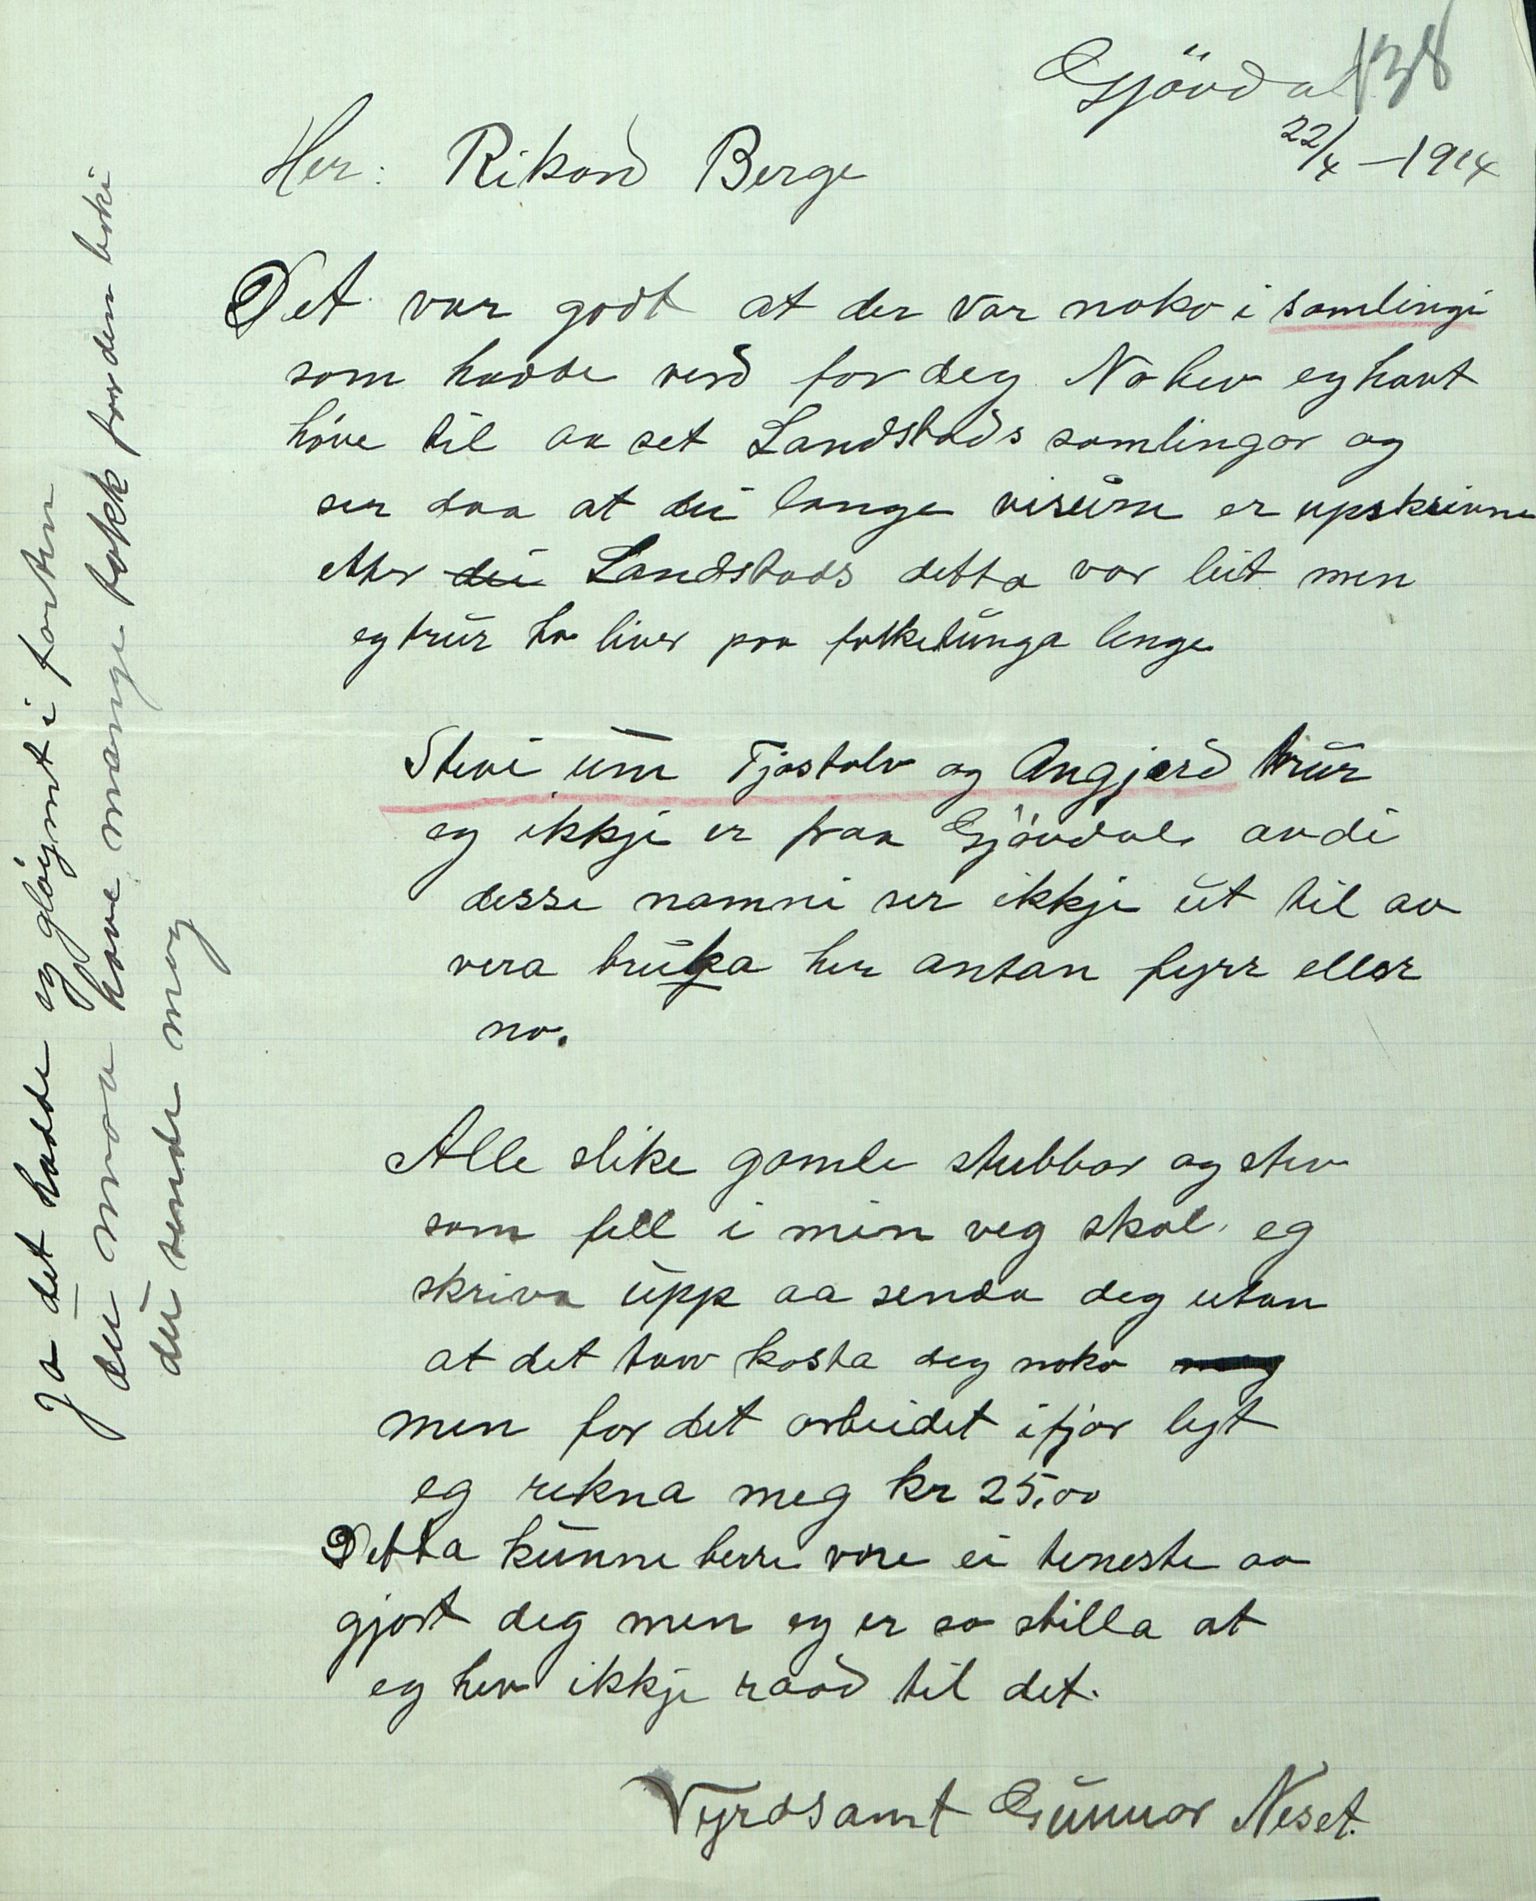 Gjövdal 138
22/4 – 1914
Her: Rikard Berge
Det var godt at der var noko i samlingi
som hadde verd for deg No hev eg havt
höve til aa set Landstads samlingar og
ser daa at dei lange visune er upskrivne
etter dei Landstads detta var leit men
eg trur ho liver paa folketunga lenge
Stevi um Tjostolv og Angjerd trur
eg ikkje er fraa Gjövdal avdi
desse namni ser ikkje ut til av
vera bruka her antan fyrr eller
no.
Alle slike gamle stubbar og stev
som fell i min veg skal eg
skriva upp aa senda deg utan
at det tarv kosta deg noko
men for det arbeidet ifjor lyt
eg rekna meg kr 25,00
Detta kunne berre vore ei teneste aa
gjort deg men eg er so stilla at
eg hev ikkje raad til det.
Vyrdsamt Gunnar Neset.
Ja det hadde eg glöymt i farten
du maa have mange takk for den boki
du sende meg